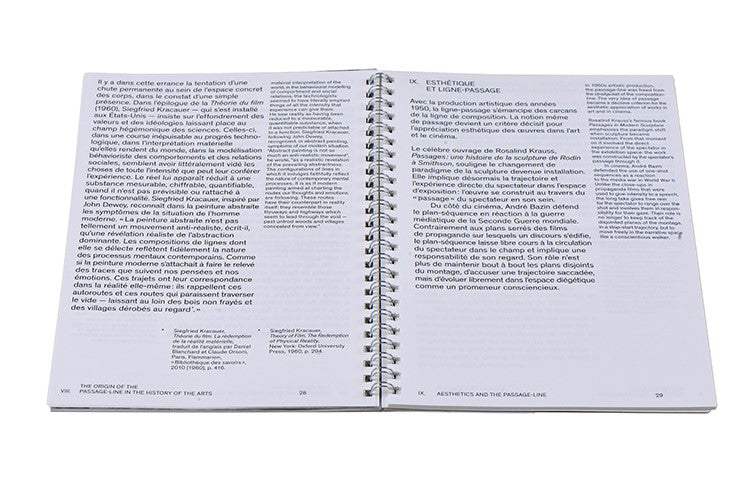 Il y a dans cette errance la tentation d'une
chute permanente au sein de l'espace concret
des corps, dans le constat d'une simple
présence. Dans l'épilogue de la Théorie du film
(1960), Siegfried Kracauer — qui s'est installé
aux États-Unis — insiste sur l'effondrement des
valeurs et des idéologies laissant place au
champ hégémonique des sciences. Celles-ci,
dans une course inépuisable au progrès techno-
logique, dans l'interprétation matérielle
qu'elles rendent du monde, dans la modélisation
béhavioriste des comportements et des relations
sociales, semblent avoir littéralement vidé les
choses de toute l'intensité que peut leur conférer
l'expérience. Le réel lui apparaît réduit à une
substance mesurable, chiffrable, quantifiable,
quand il n'est pas prévisible ou rattaché à
une fonctionnalité. Siegfried Kracauer, inspiré par
John Dewey, reconnaît dans la peinture abstraite
les symptômes de la situation de l'homme
moderne. « La peinture abstraite n'est pas
tellement un mouvement anti-réaliste, écrit-il,
qu'une révélation réaliste de l'abstraction
dominante. Les compositions de lignes dont
elle se délecte reflètent fidèlement la nature
des processus mentaux contemporains. Comme
si la peinture moderne s'attachait à faire le relevé
des traces que suivent nos pensées et nos
émotions. Ces trajets ont leur correspondance
dans la réalité elle-même : ils rappellent ces
autoroutes et ces routes qui paraissent traverser
le vide — laissant au loin des bois non frayés et
des villages dérobés au regard*. »
material interpretation of the
world, in the behavioural modelling
of compartment and social
relations, the technologists
seemed to have literally emptied
things of all the intensity that
experience can give them.
He saw reality as having been
reduced to a measurable,
quantifiable substance, when
it was not predictable or attached
to a function. Siegfried Kracauer,
following John Dewey,
recognized, in abstract painting,
symptoms of our modern situation.
"Abstract painting is not so
much an anti-realistic movement",
he wrote, "as a realistic revelation
of the prevailing abstractness.
The configurations of lines in
which it indulges faithfully reflect
the nature of contemporary mental
processes. It is as if modern
painting aimed at charting the
routes our thoughts and emotions
are following. These routes
have their counterpart in reality
itself; they resemble those
thruways and highways which
seem to lead through the void—
past untrod woods and villages
concealed from view."*
* Siegfried Kracauer,
Théorie du film. La rédemption
de la réalité matérielle,
traduit de l'anglais par Daniel
Blanchard et Claude Orsoni,
Paris, Flammarion,
« Bibliothèque des savoirs »,
2010 [1960], p. 416.
* Siegfried Kracauer,
Theory of Film. The Redemption
of Physical Reality,
New York: Oxford University
Press, 1960, p. 294.
VIII. THE ORIGIN OF THE
PASSAGE-LINE IN THE HISTORY OF THE ARTS
28
IX. ESTHÉTIQUE
ET LIGNE-PASSAGE
Avec la production artistique des années
1950, la ligne-passage s'émancipe des carcans
de la ligne de composition. La notion même
de passage devient un critère décisif pour
l'appréciation esthétique des œuvres dans l'art
et le cinéma.
Le célèbre ouvrage de Rosalind Krauss,
Passages : une histoire de la sculpture de Rodin
à Smithson, souligne le changement de
paradigme de la sculpture devenue installation.
Elle implique désormais la trajectoire et
l'expérience directe du spectateur dans l'espace
d'exposition : l'œuvre se construit au travers du
« passage » du spectateur en son sein.
Du côté du cinéma, André Bazin défend
le plan-séquence en réaction à la guerre
médiatique de la Seconde Guerre mondiale.
Contrairement aux plans serrés des films
de propagande sur lesquels un discours s'édifie,
le plan-séquence laisse libre cours à la circulation
du spectateur dans le champ et implique une
responsabilité de son regard. Son rôle n'est
plus de maintenir bout à bout les plans disjoints
du montage, d'accuser une trajectoire saccadée,
mais d'évoluer librement dans l'espace diégétique
comme un promeneur consciencieux.
In 1950s artistic production,
the passage-line was freed from
the straitjacket of the composition-
line. The very idea of passage
became a decisive criterion for the
aesthetic appreciation of works in
art and in cinema.
Rosalind Krauss's famous book
Passages in Modern Sculpture
emphasises the paradigm shift
when sculpture became
installation. From that moment
on it involved the direct
experience of the spectator in
the exhibition space: the work
was constructed by the spectator's
passage through it.
In cinema, André Bazin,
defended the use of one-shot
sequences as a reaction
to the media war in World War II.
Unlike the close-ups in
propaganda films that were
used to give intensity to a speech,
the long take gives free rein
for the spectator to range over the
shot and involves them in respon-
sibility for their gaze. Their role is
no longer to keep track of the
disjointed planes of the montage,
in a stop-start trajectory, but to
move freely in the narrative space
like a conscientious walker.
IX. AESTHETICS AND THE PASSAGE-LINE
29